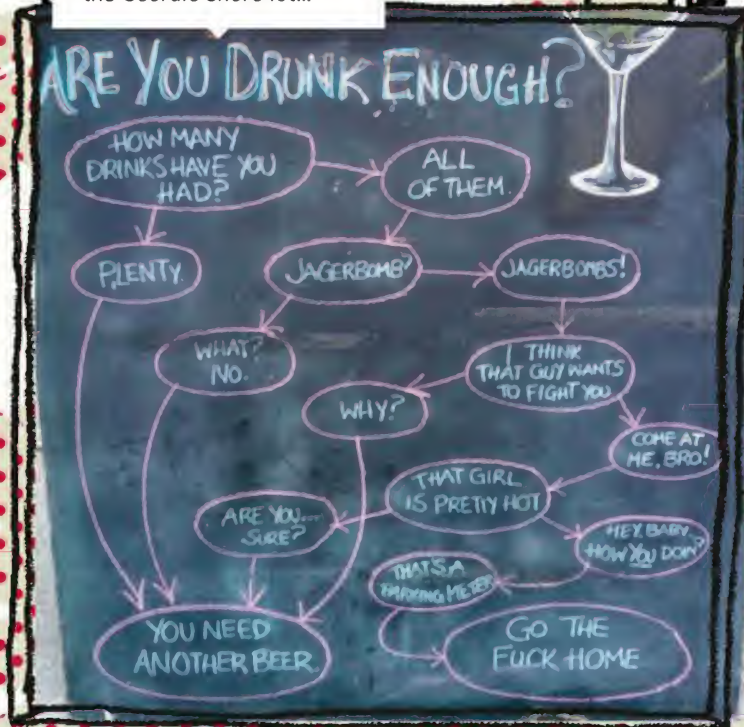 ARE YOU DRUNK ENOUGH?
HOW MANY
DRINKS HAVE YOU
HAD?
ALL
OF THEM.
PLENTY.
JAGERBOMB?
JAGERBOMBS!
WHAT?
NO.
I THINK
THAT GUY WANTS
TO FIGHT YOU
WHY?
COME AT
ME, BRO!
THAT GIRL
IS PRETTY HOT
ARE YOU...
SURE?
HEY, BABY
HOW YOU DOIN?
THAT'S A
PARKING METER
YOU NEED
ANOTHER BEER.
GO THE
FUCK HOME